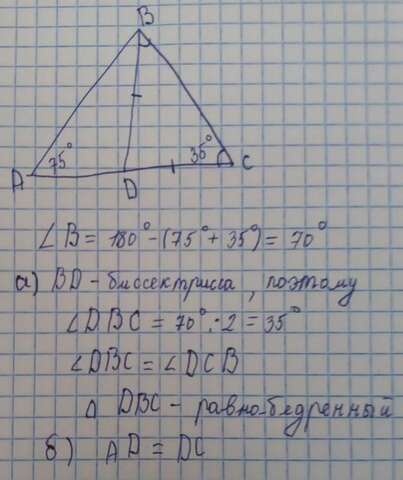 B
75°
35°
A
D
C
∠B = 180° - (75° + 35°) = 70°
а) BD - биссектриса, поэтому
∠DBC = 70° : 2 = 35°
∠DBC = ∠DCB
Δ DBC - равнобедренный
б) AD = DC